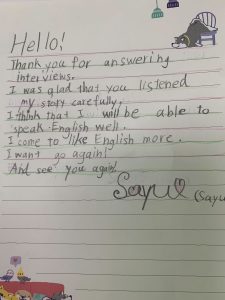 Hello!
Thank you for answering
interviews.
I was glad that you listened
my story carefully.
I think that I will be able to
speak English well.
I come to like English more.
I want go again!
And see you again!
Sayu (Sayu